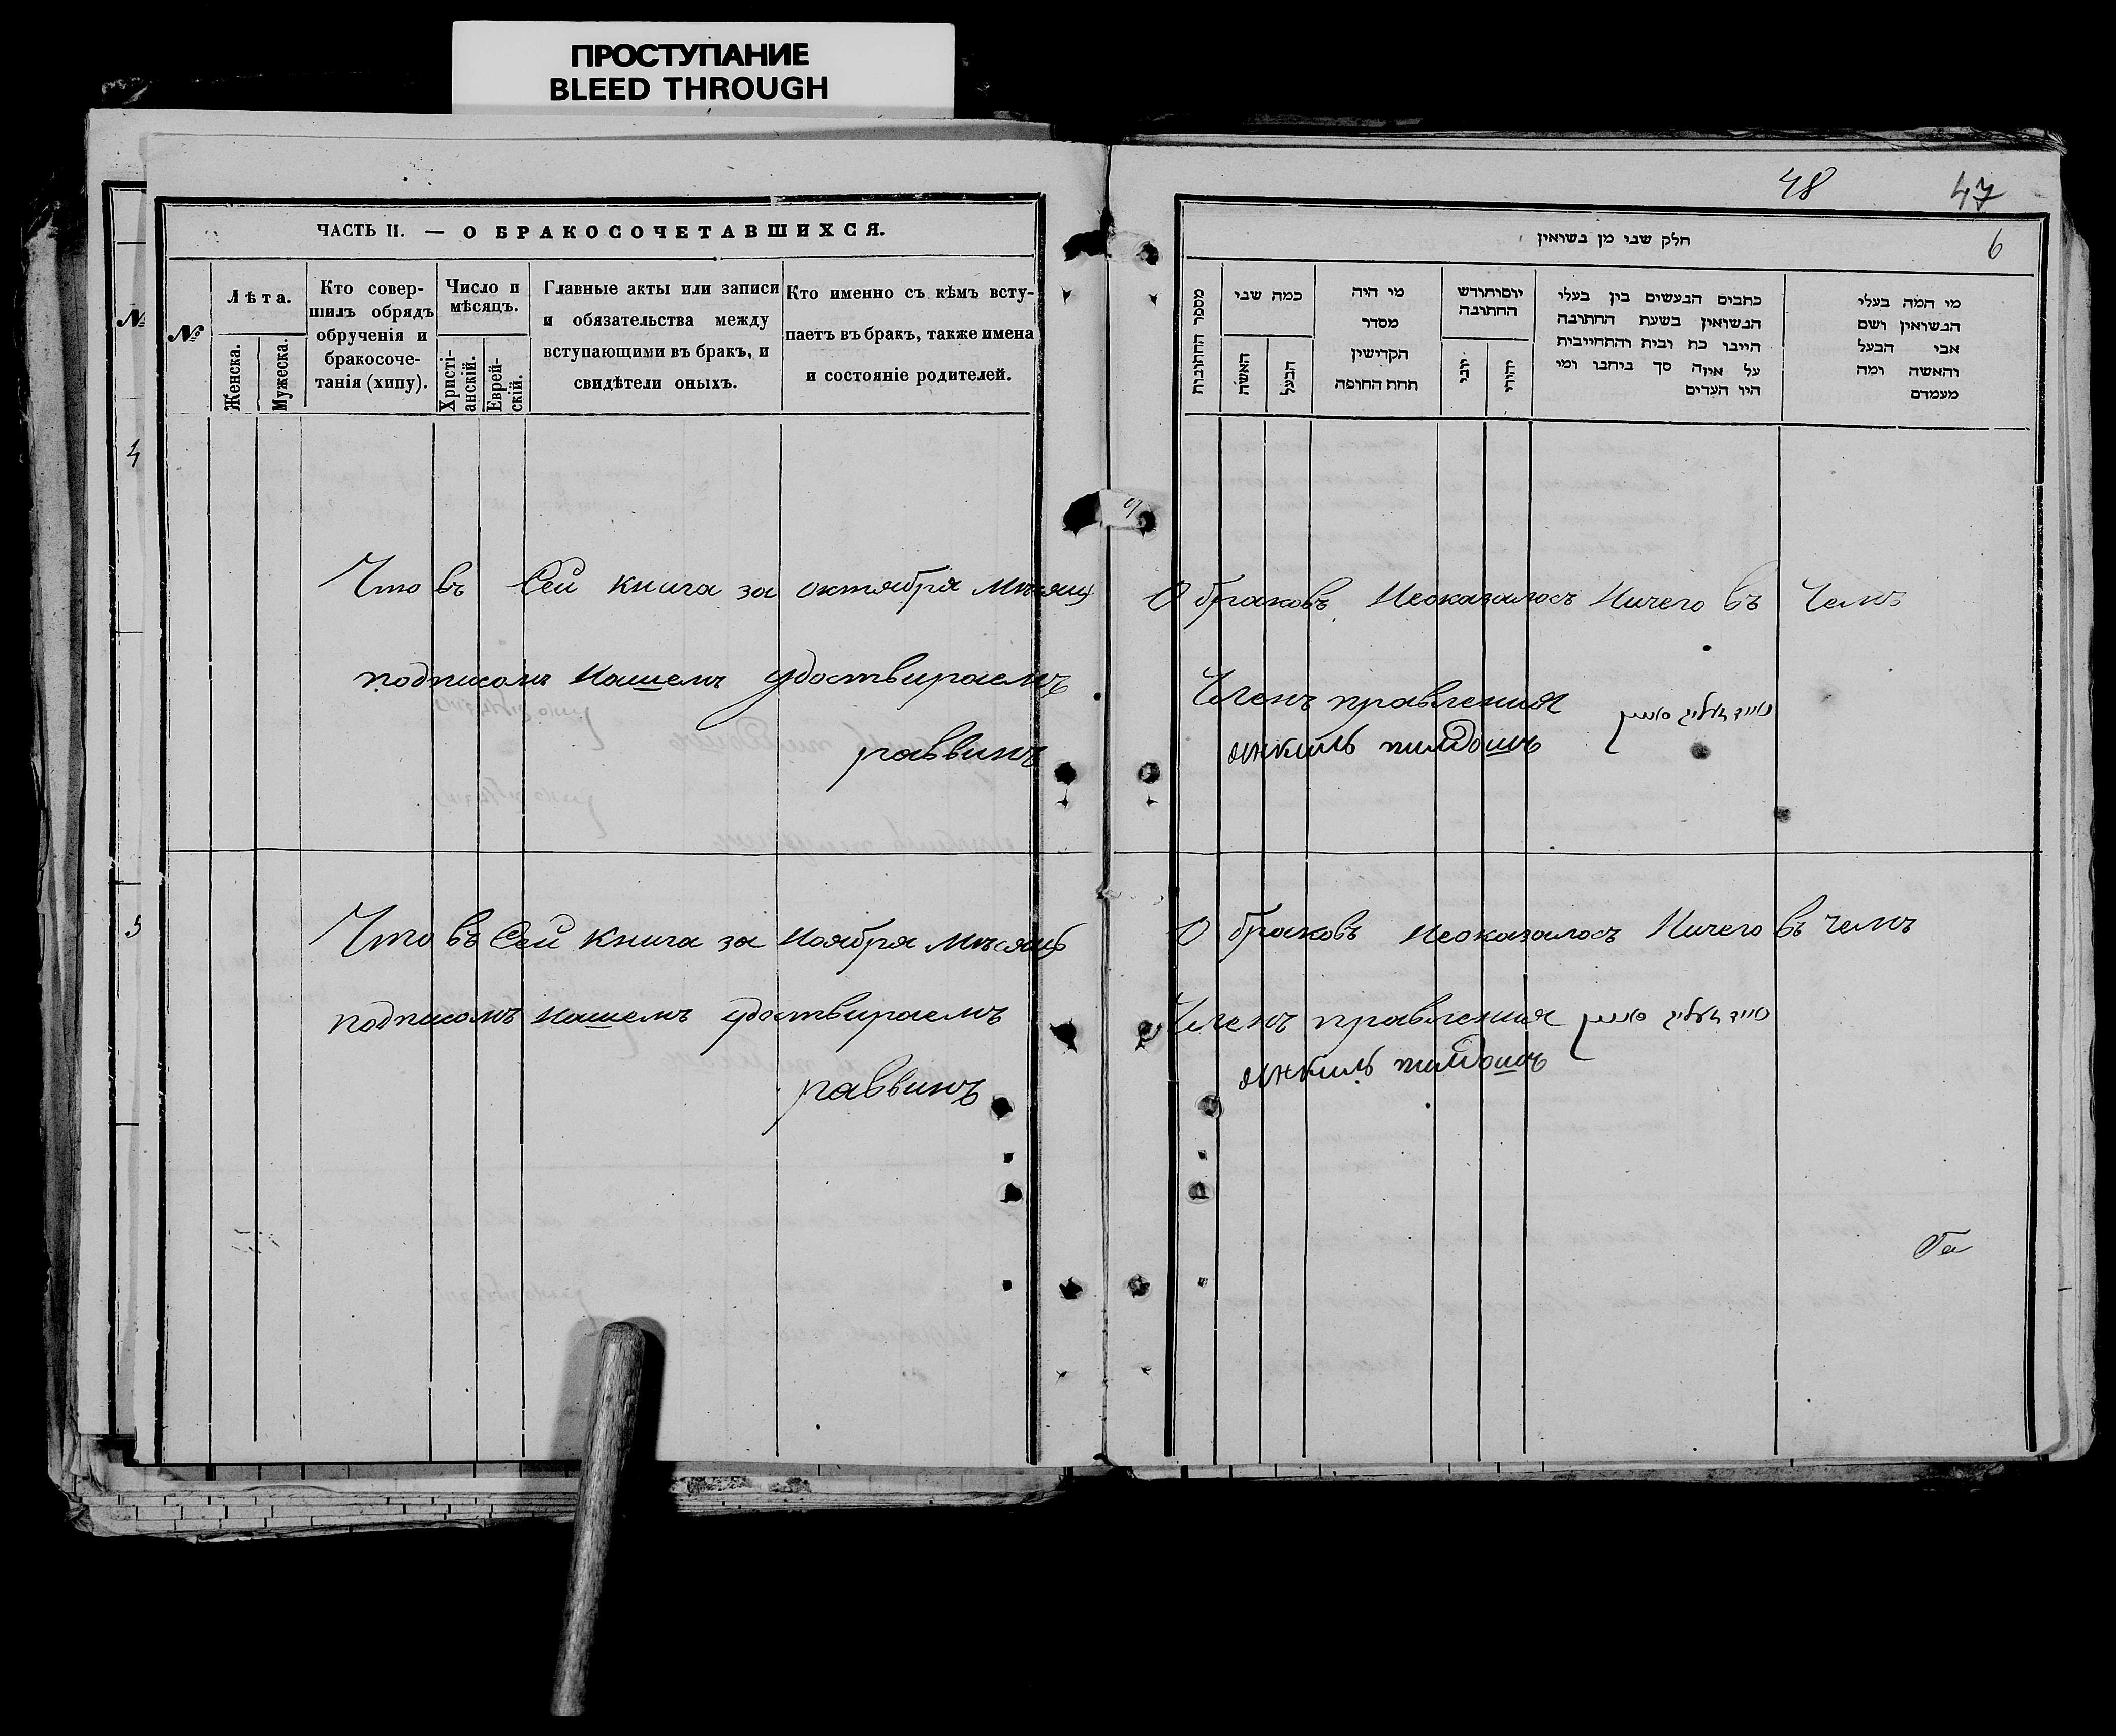 ПРОСТУПАНИЕ
BLEED THROUGH
ЧАСТЬ II. — О БРАКОСОЧЕТАВШИХСЯ.
№
Лѣта.
Женска.
Мужеска.
Кто совер-
шилъ обрядъ
обрученія и
бракосоче-
танія (хипу).
Число и
мѣсяцъ.
Христі-
анскій.
Еврей-
скій.
Главные акты или записи
и обязательства между
вступающими въ бракъ, и
свидѣтели оныхъ.
Кто именно съ кѣмъ всту-
паетъ въ бракъ, также имена
и состояніе родителей.
48 47
6
חלק שני מן נשואין
מספר החתונות
כמה שני
האשה
הבעל
מי היה
מסדר
הקדישין
תחת החופה
יום וחודש
החתונה
יוני
יהודי
כתבים הנעשים בין בעלי
הנשואין בשעת החתונה
היינו כח ובית והתחייבית
על איזה סך ביחבו ומי
היו העדים
מי המה בעלי
הנשואין ושם
אבי הבעל
והאשה ומה
מעמדם
4
Что въ Сей книга за октября мѣсяцъ О браковъ Неоказалось Ничего въ Чемъ
подписомъ Нашемъ удоствираемъ
раввинъ
Членъ правления
янкиль
5
Что въ Сей книга за Ноября мѣсяцъ О браковъ Неоказалось Ничего въ чемъ
подписомъ Нашемъ удоствираемъ
раввинъ
Членъ правления
янкиль